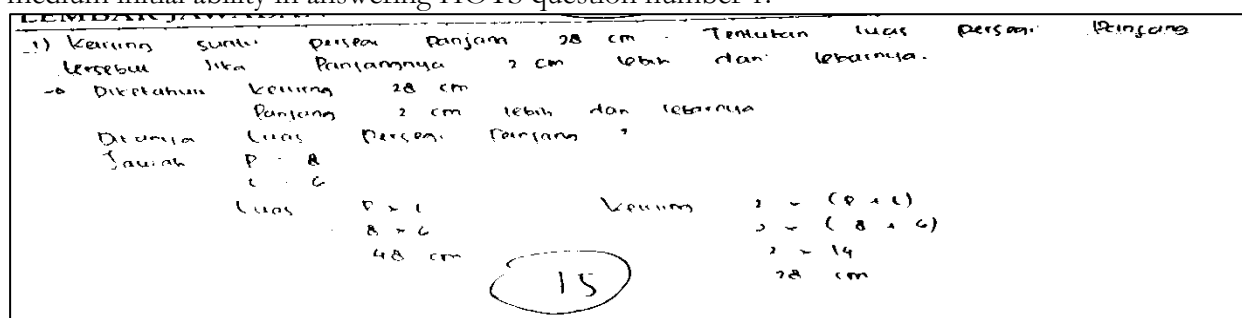 medium initial ability in answering HOTS question number 1.
LEMBAR JAWABAN
1) Keliling suatu persegi panjang 28 cm . Tentukan luas persegi Panjang
tersebut Jika Panjangnya 2 cm lebih dari lebarnya.
→ Diketahui Keliling 28 cm
Panjang 2 cm lebih dari lebarnya
Ditanya Luas Persegi Panjang ?
Jawab P = 8
l = 6
Luas P × l Keliling 2 × (P + l)
8 × 6 2 × ( 8 + 6)
48 cm 2 × 14
28 cm
15